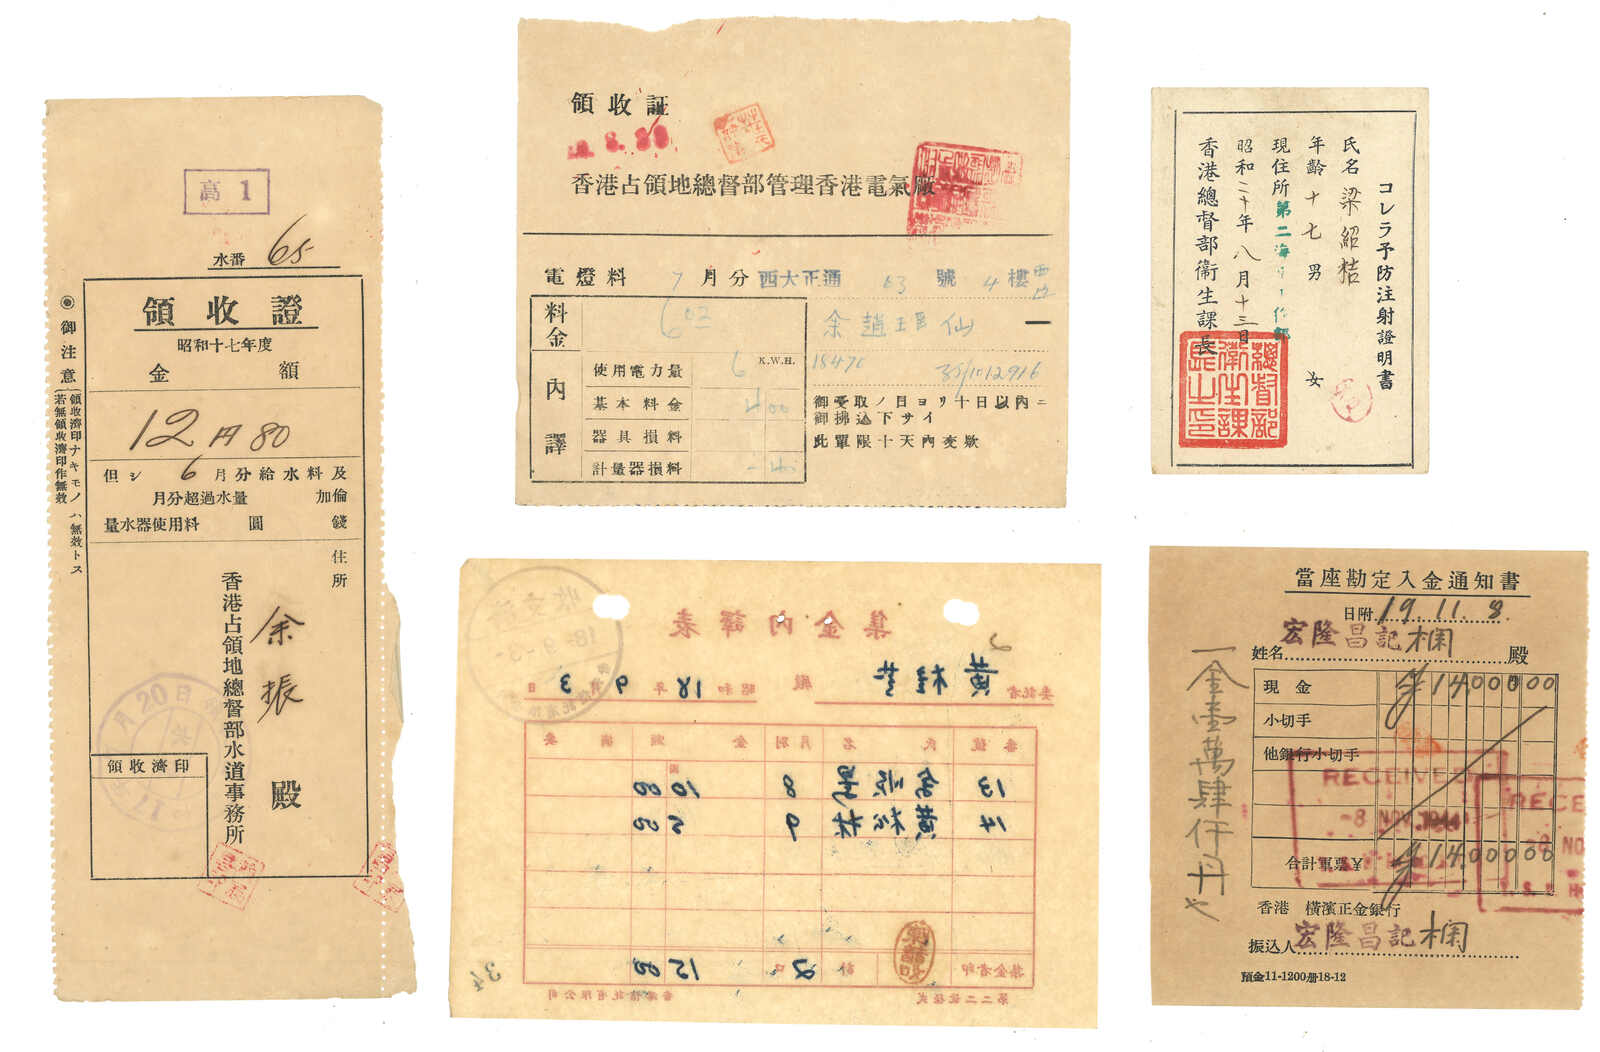 高 1
水番 65
領收證
昭和十七年度
金 額
12円80
但シ 6月分給水料及
月分超過水量 加倫
量水器使用料 圓 錢
住所
余振 殿
香港占領地總督部水道事務所
領收濟印
20日
◉御注意
領收濟印ナキモノハ無效トス
若無領收濟印作無效
領收証
香港占領地總督部管理香港電氣廠
電燈料 7月分 西大正通 63 號 4樓
料金 6 02
余趙 仙
內譯
使用電力量 6 K.W.H.
基本料金
器具損料
計量器損料
18476
御受取ノ日ヨリ十日以內ニ
御拂込下サイ
此單限十天內交欵
コレラ予防注射證明書
氏名 梁紹桔
年齡 十七 男 女
現住所 第二海
昭和二十年八月十三日
香港總督部衛生課長
總督部
衛生課
長之印
集金內譯表
委託者 黃桂芝 殿
昭和18年9月3日
18-9-3
番號 氏名 月別 金額 摘要
13 8 10 00
14 黃松林 9 2 00
計 2口 12 00
集金者印
第二二號樣式
香港信託有限公司
34
當座勘定入金通知書
日附 19.11.8.
姓名 宏隆昌記 殿
現金 ¥14,000 00
小切手
他銀行小切手
合計軍票¥ ¥14,000 00
RECEIVED
-8 NOV.1944
香港 橫濱正金銀行
振込人 宏隆昌記
預金11-1200册18-12
一金壹萬肆仟円也